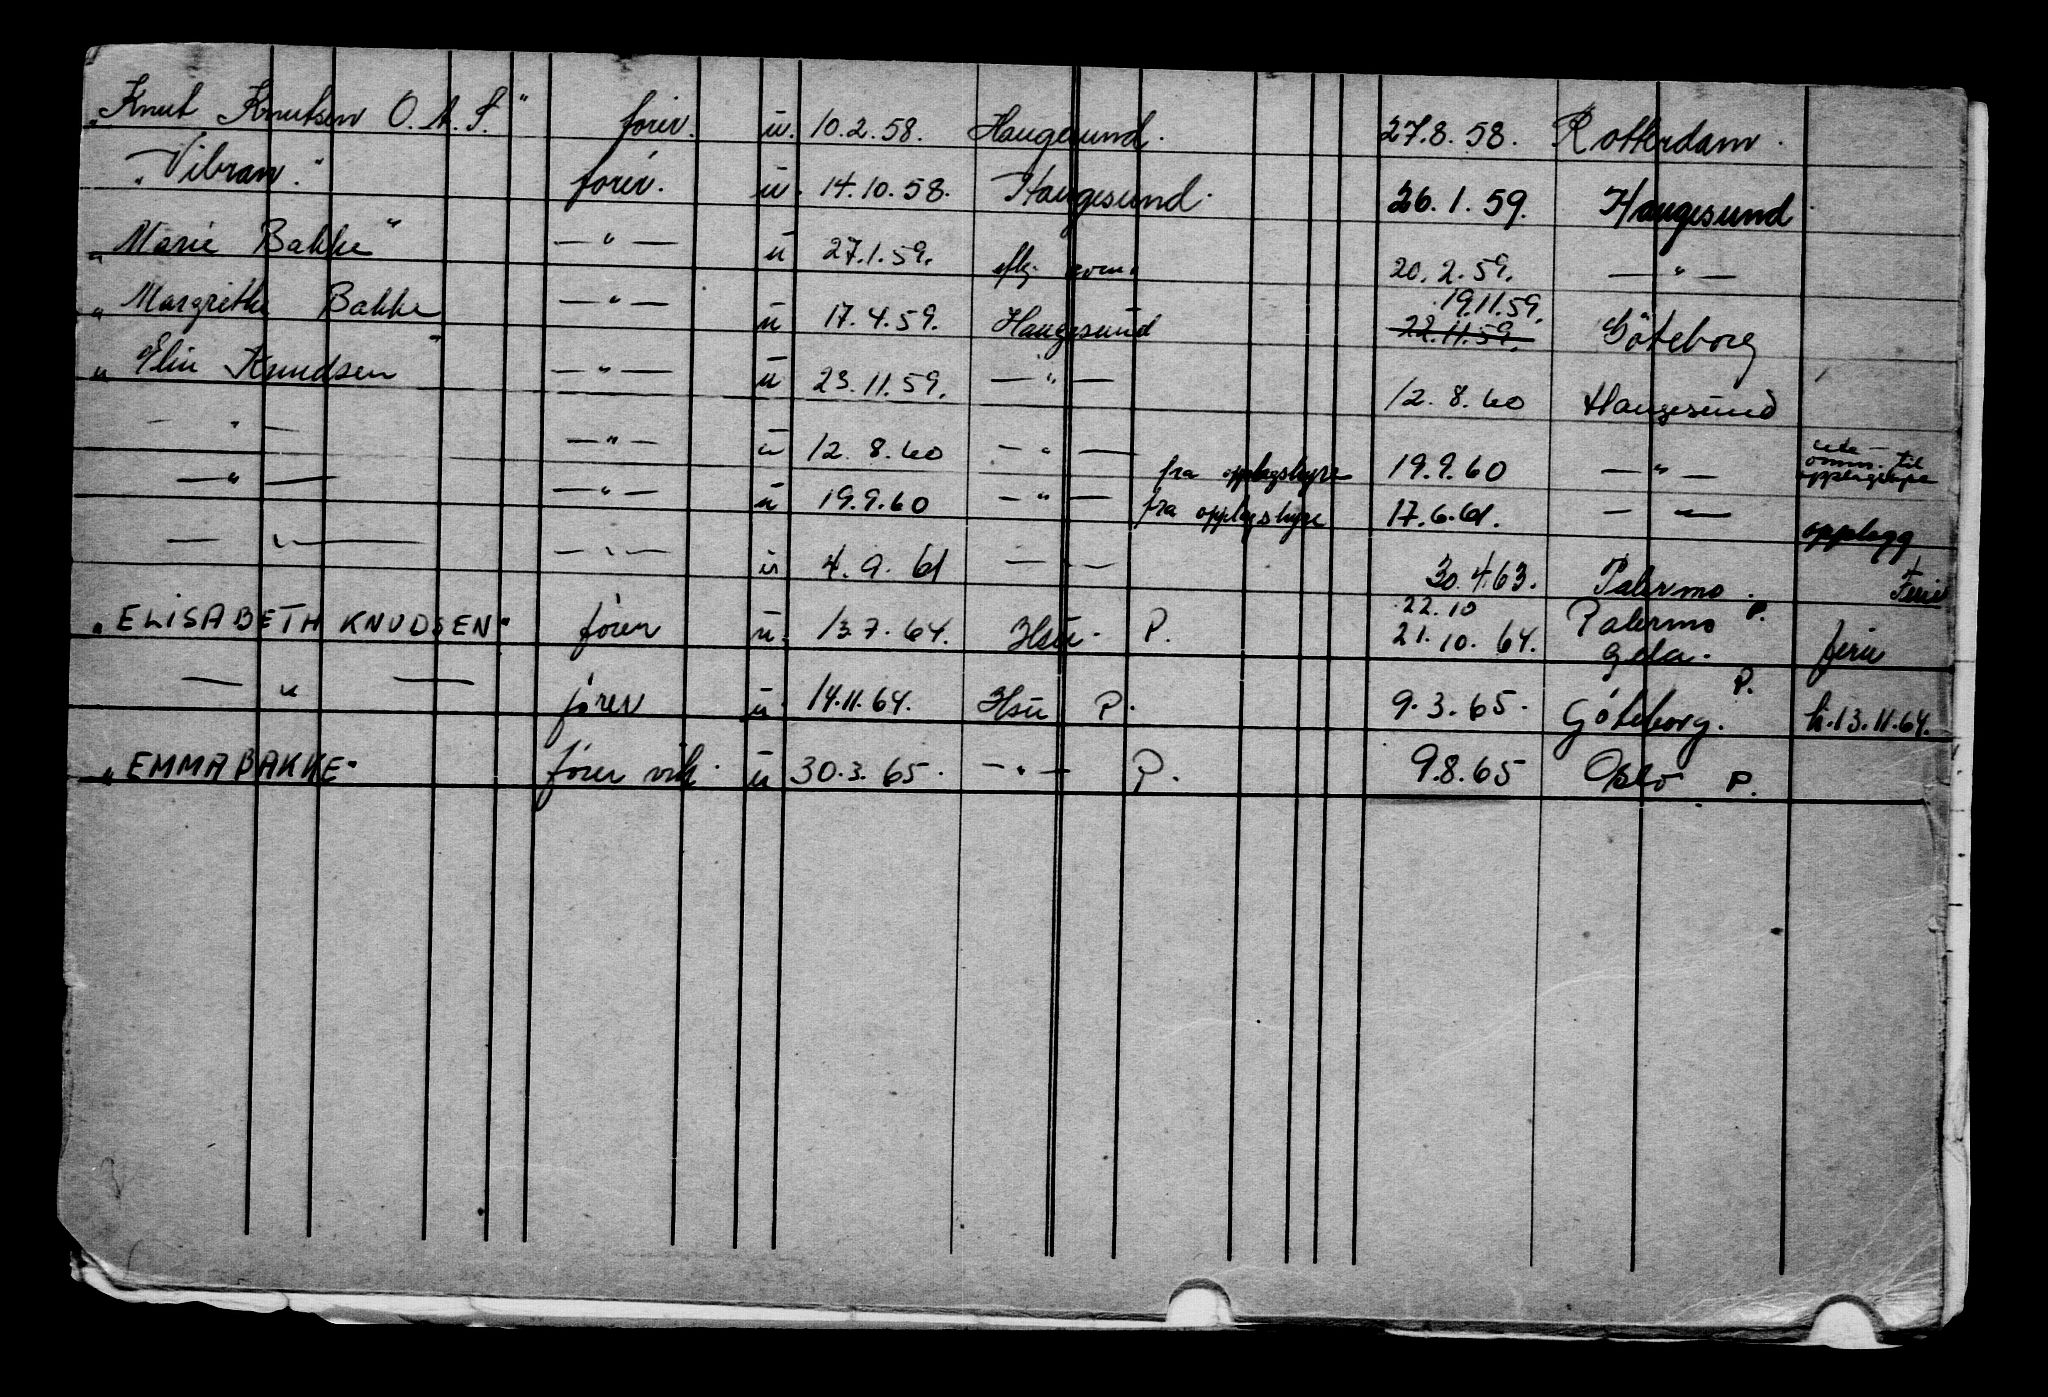 "Knut Knutsen O.A.S." förer. u. 10.2.58. Haugesund. 27.8.58. Rotterdam.
"Vibran." förer. u. 14.10.58. Haugesund. 26.1.59. Haugesund
"Marie Bakke" — " — u 27.1.59. 20.2.59. — " —
"Margrethe Bakke — " — u 17.4.59. Haugesund 19.11.59. 22.11.59. Göteborg
"Elin Knudsen" — " — u 23.11.59. — " — 12.8.60 Haugesund
— " — — " — u 12.8.60 — " — 19.9.60 — " — omm. til opplagshyre
— " — — " — u 19.9.60 — " — fra opplagshyre 17.6.61. — " — opplagg
— " — — " — u 4.9.61 — " — fra opplagshyre 30.4.63. Palermo. Ferie
"ELISABETH KNUDSEN" förer u. 13.7.64. Hsu. P. 22.10 21.10.64. Palermo P. Gela. ferie
— " — förer u 14.11.64. Hsu P. 9.3.65. Göteborg. P. h.13.11.64.
"EMMA BAKKE" förer vik. u 30.3.65. — " — P. 9.8.65 Oslo P.